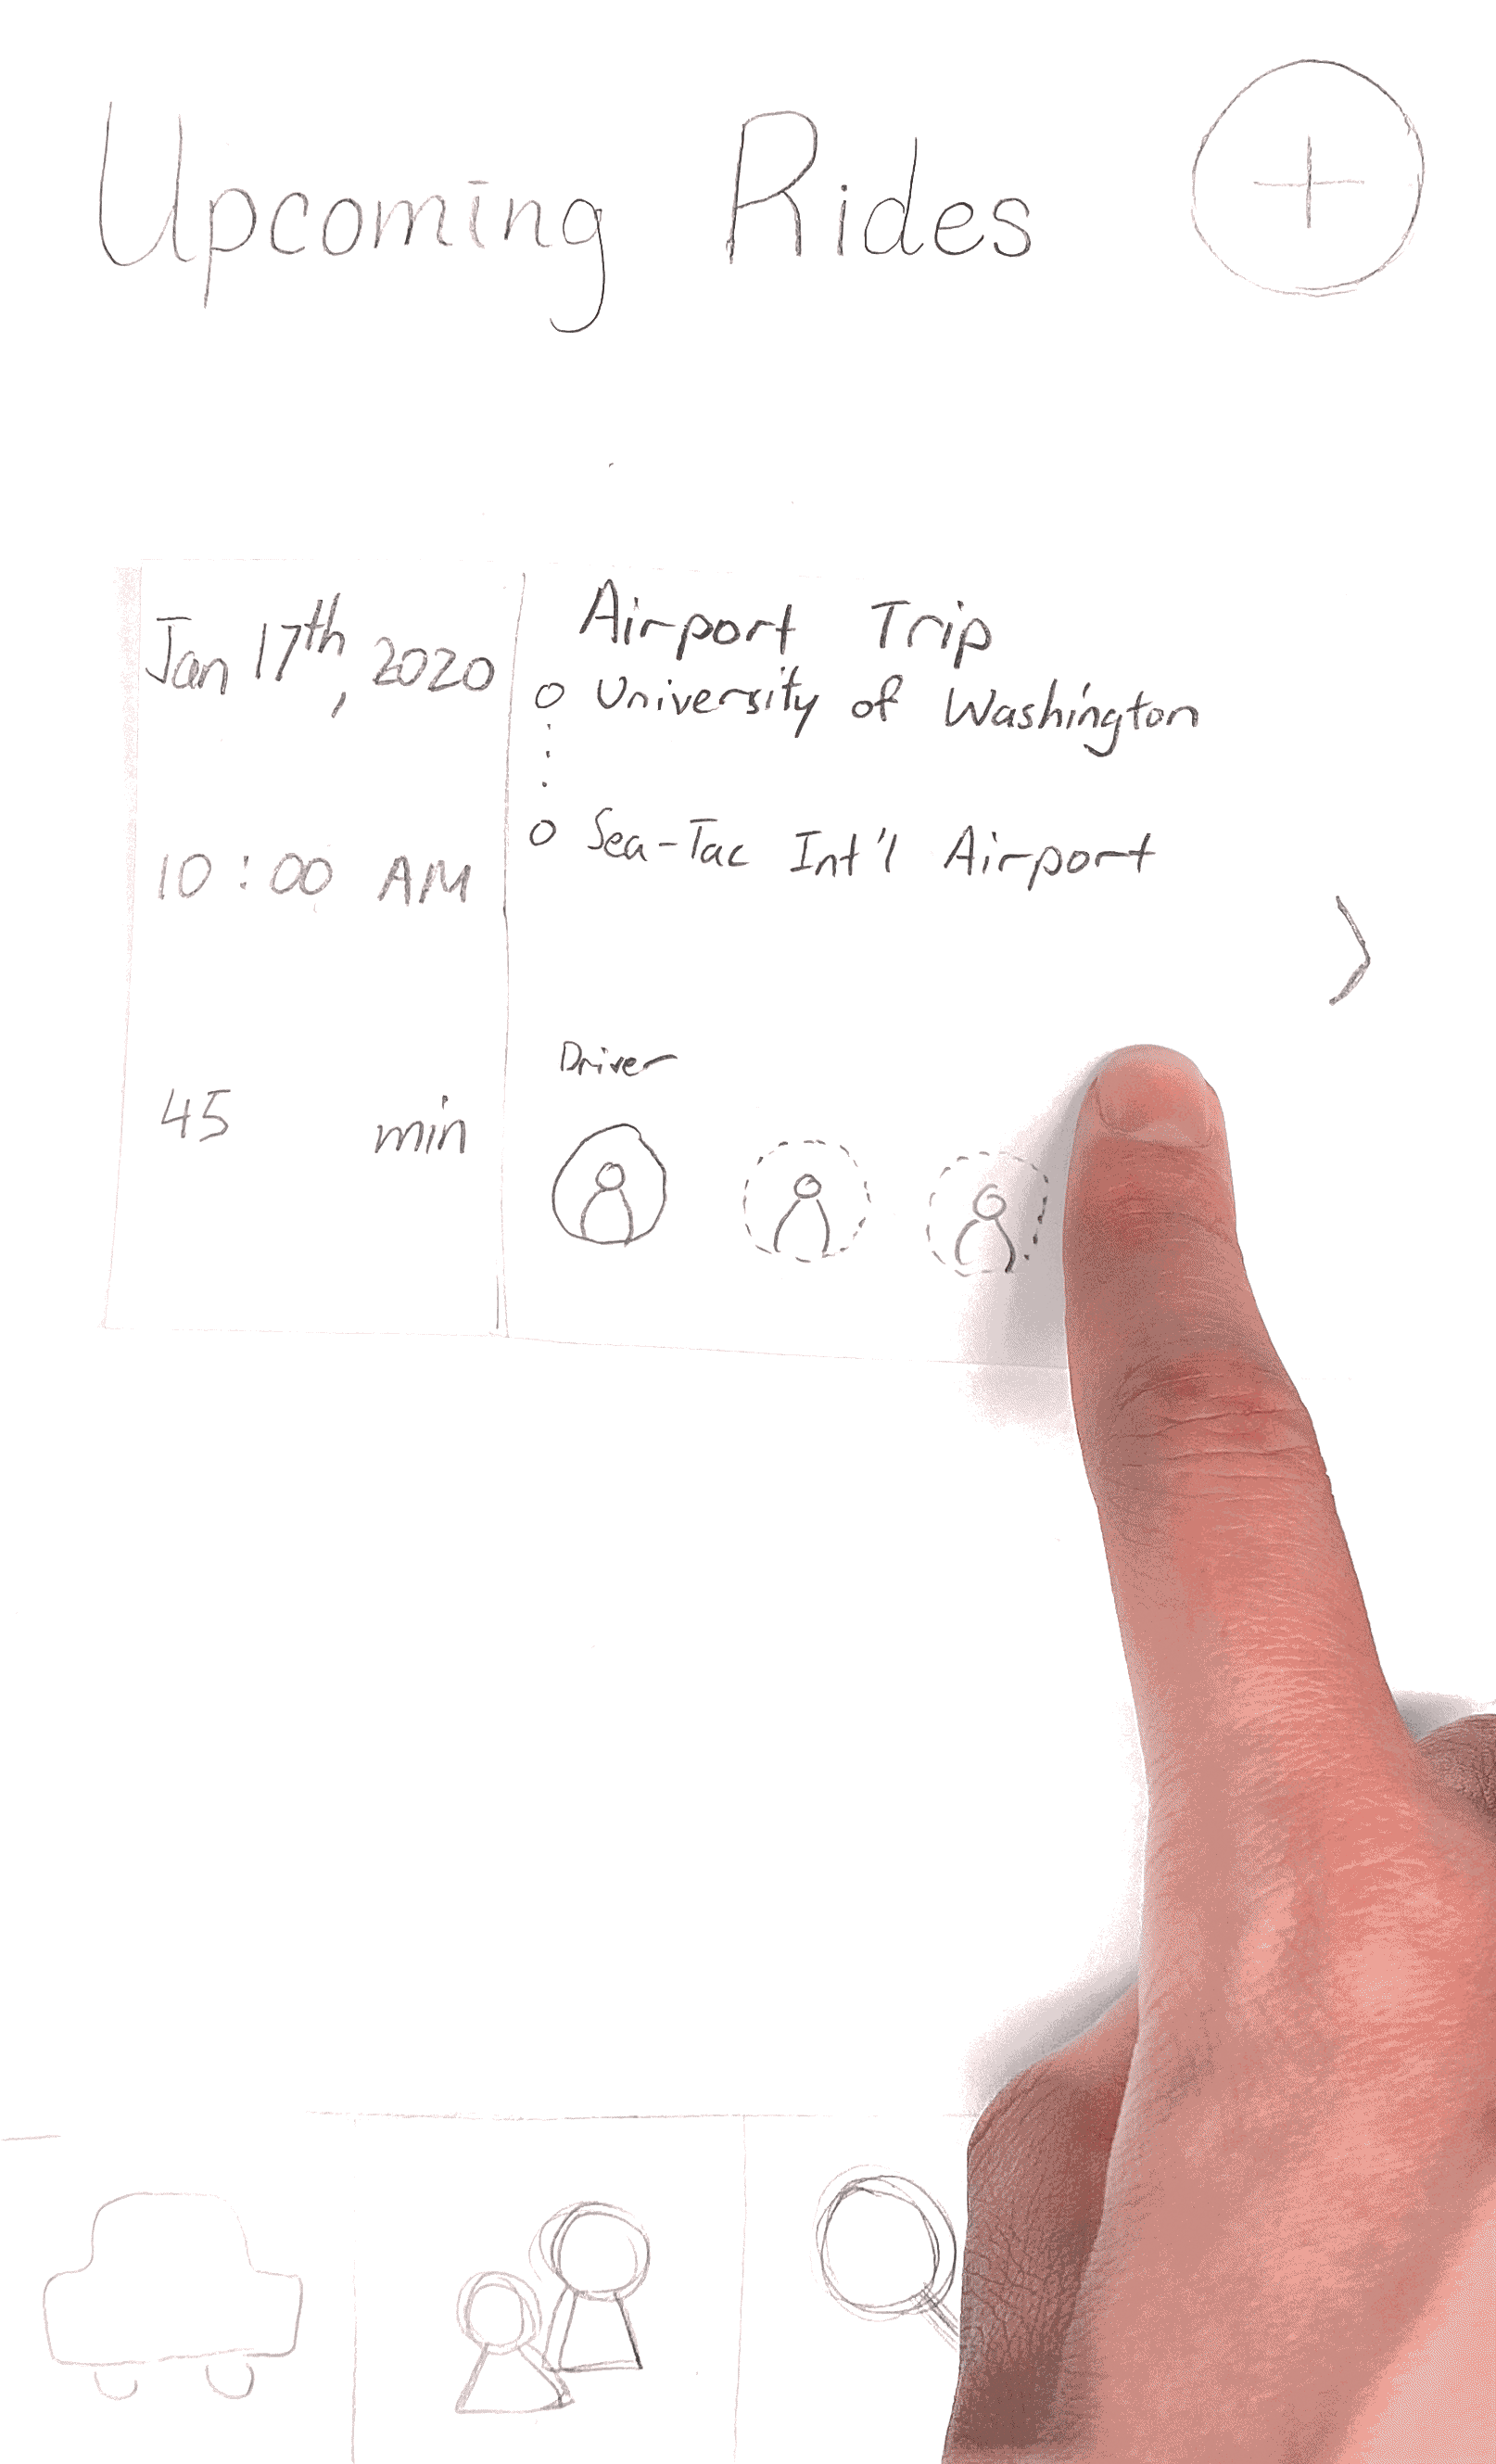 Upcoming Rides
Jan 17th, 2020
10:00 AM
45 min
Airport Trip
University of Washington
Sea-Tac Int'l Airport
Driver